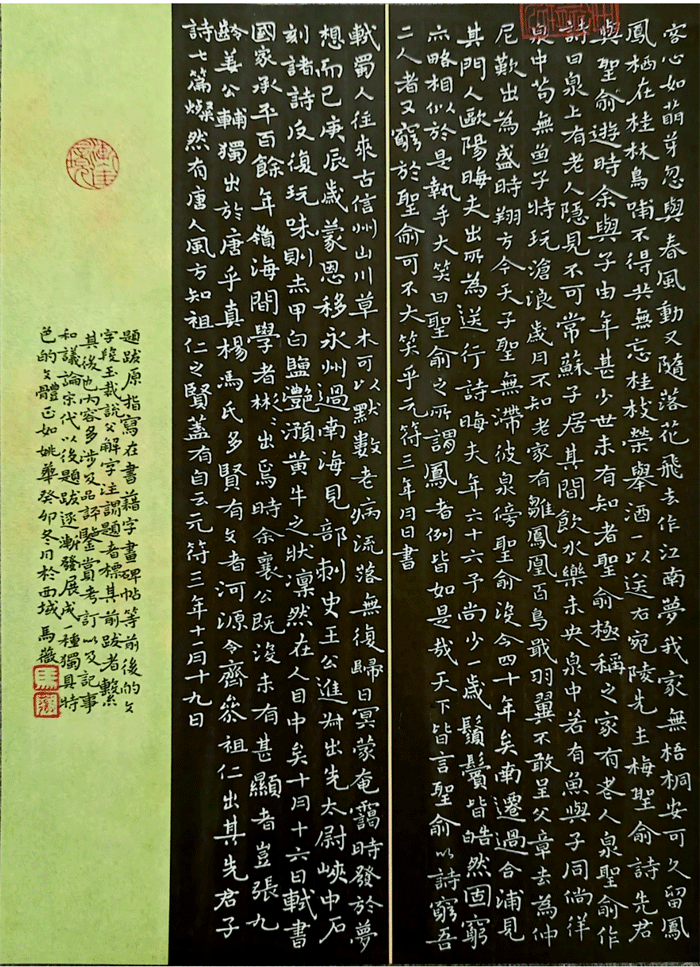 客心如萌芽忽與春風動又隨落花飛去作江南夢我家無梧桐安可久留鳳
鳳栖在桂林烏哺不得共無忘桂枝榮舉酒一以送右宛陵先生梅聖俞詩先君
與聖俞遊時余與子由年甚少世未有知者聖俞極稱之家有老人泉聖俞作
詩曰泉上有老人隱見不可常蘇子居其間飲水樂未央泉中若有魚與子同徜徉
泉中苟無魚子特玩滄浪歲月不知老家有雛鳳凰百鳥戢羽翼不敢呈文章去為仲
尼歎出為盛時翔方今天子聖無滯彼泉傍聖俞沒今四十年矣南遷過合浦見
其門人歐陽晦夫出所為送行詩晦夫年六十六子尚少歲鬚鬢皆皓然固窮
亦略相似於是執手大笑曰聖俞之所謂鳳者例皆如是哉天下皆言聖俞以詩窮吾
二人者又窮於聖俞可不大笑乎元符三年月日書
軾蜀人往來古信州山川草木可以默數老病流落無復歸日冥蒙奄靄時發於夢
想而已庚辰歲蒙恩移永州過南海見部刺史王公進叔出先太尉峽中石
刻諸詩反復玩味則赤甲白鹽灩澦黃牛之狀凜然在人目中矣十月十六日軾書
國家承平百餘年嶺海間學者彬彬出焉時余襄公既沒未有甚顯者豈張九
齡姜公輔獨出於唐乎真楊馮氏多賢有文者河源令齊參祖仁出其先君子
詩七篇燦然有唐人風方知祖仁之賢蓋有自云元符三年十月十九日
題跋原指寫在書籍字畫碑帖等前後的文
字段玉裁說文解字注謂題者標其前跋者繫
其後也內容多涉及品評鑒賞考訂以及記事
和議論宋代以後題跋逐漸發展成一種獨具特
色的文體正如姚華癸卯冬月於西域馬薇